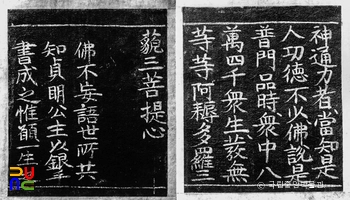 神通力者當知是
人功德不少佛說是
普門品時衆中八
萬四千衆生皆發無
等等阿耨多羅三
藐三菩提心
佛不妄語世所共
知貞明公主以銀
書成之惟願一生